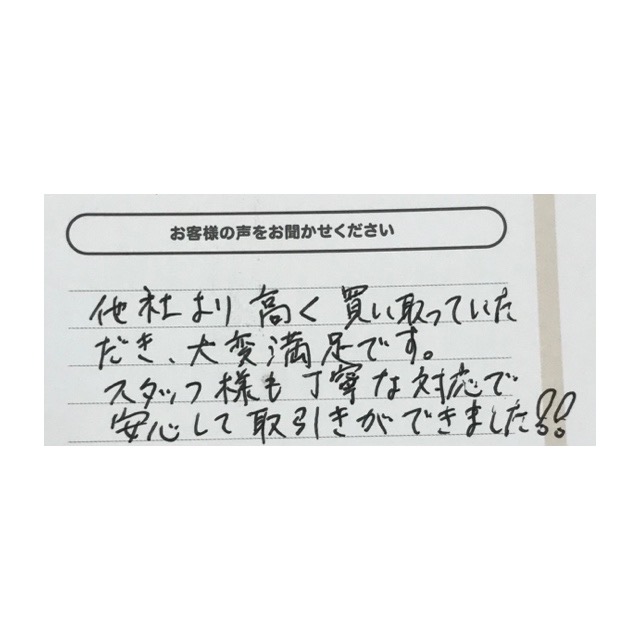 お客様の声をお聞かせください
他社より高く買い取っていた
だき、大変満足です。
スタッフ様も丁寧な対応で
安心して取引きができました!!